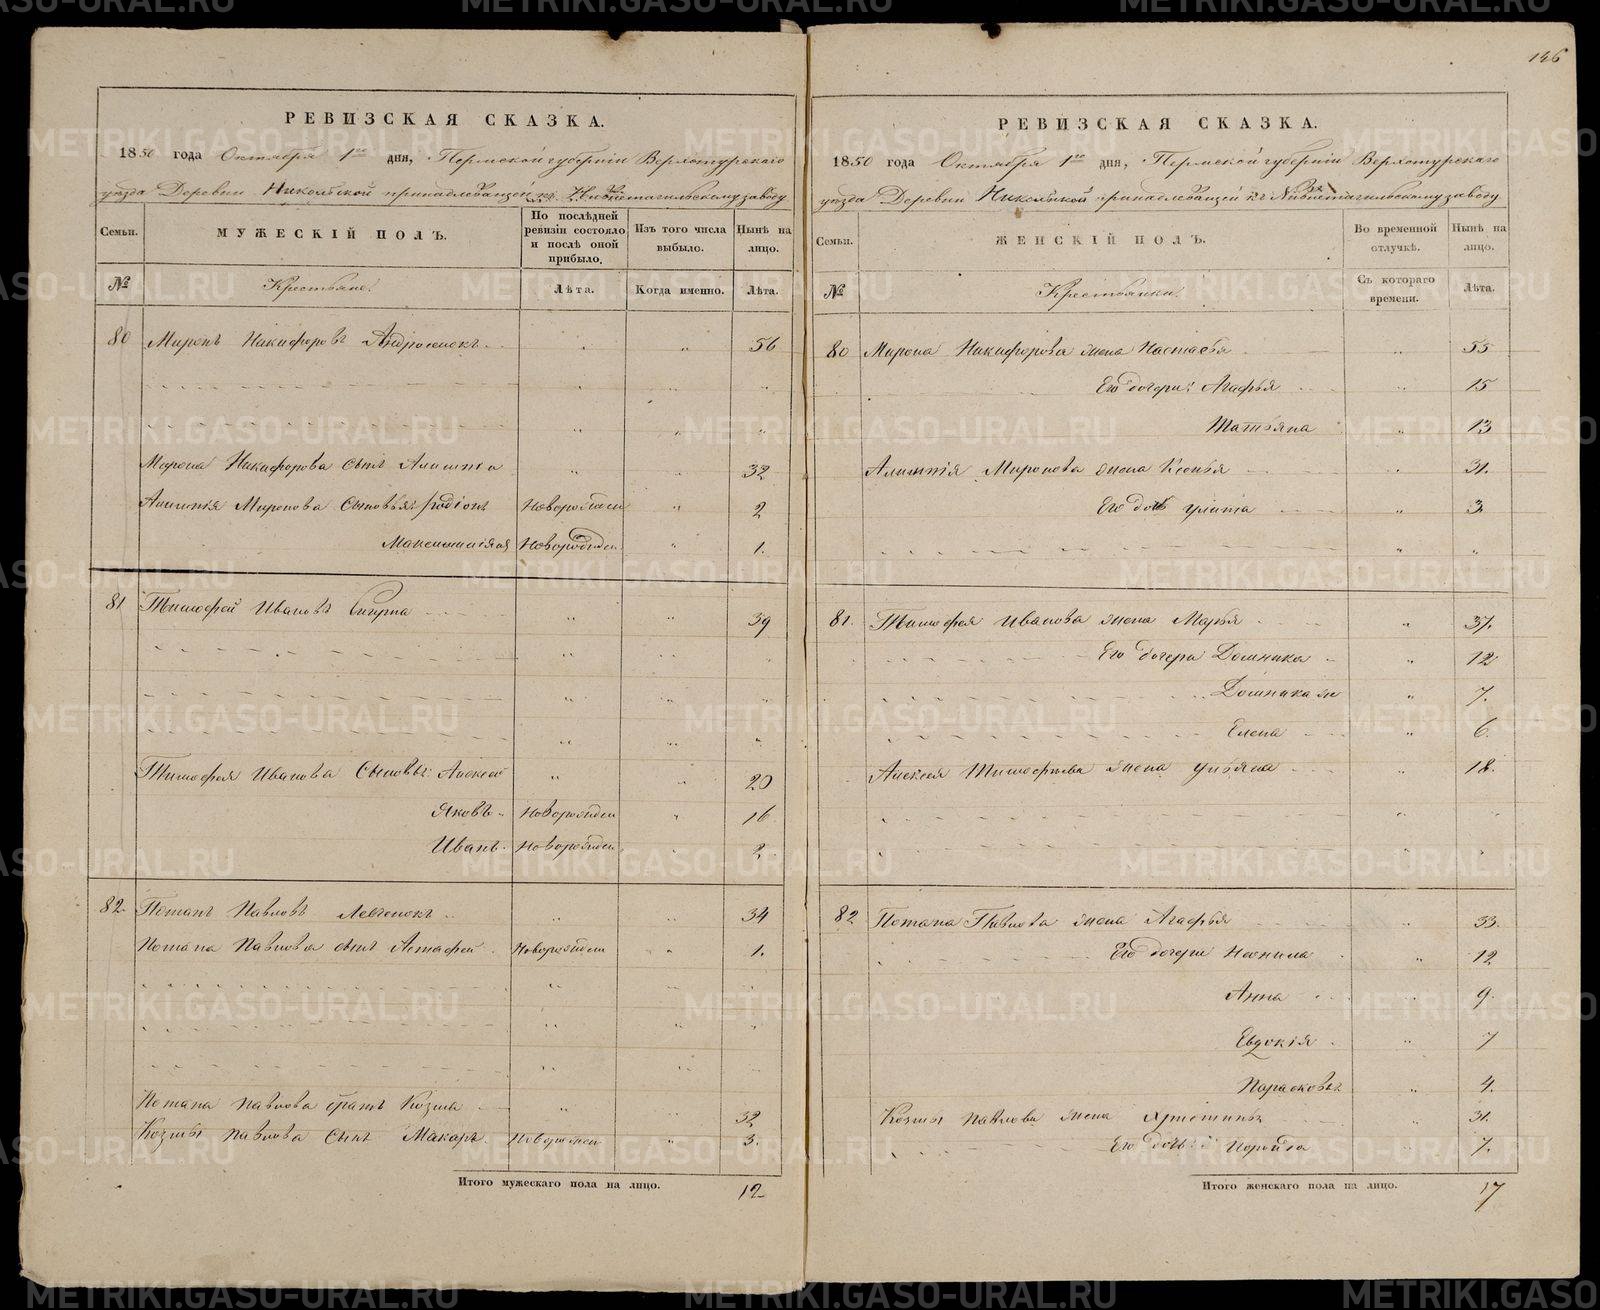 146
РЕВИЗСКАЯ СКАЗКА.
1850 года Октября 1го дня, Пермской губернiи Верхотурскаго
уѣзда Деревни Никольской принадлежащей къ Нижнетагильскому заводу
Семьи. МУЖЕСКIЙ ПОЛЪ. По послѣдней ревизiи состояло и послѣ оной прибыло. Изъ того числа выбыло. Нынѣ на лицо.
№ Крестьяне: Лѣта. Когда именно. Лѣта.
80 Миронъ Никифоровъ 56
Мирона Никифорова сынъ 32
Миронова сыновья: Родiонъ Новорожден 2
Новорожден 1.
81 Тимофей Ивановъ 39
Тимофея Иванова сыновья: Алексей 20
Яковъ Новорожден 16
Иванъ Новорожден 2
82 Потапъ Павловъ 34
Потапа Павлова сынъ Новорожден 1.
Потапа Павлова братъ Козма 32
Козмы Павлова сынъ Макаръ Новорожден 3.
Итого мужескаго пола на лицо. 12
РЕВИЗСКАЯ СКАЗКА.
1850 года Октября 1го дня, Пермской губернiи Верхотурскаго
уѣзда Деревни Никольской принадлежащей къ Нижнетагильскому заводу
Семьи. ЖЕНСКIЙ ПОЛЪ. Во временной отлучкѣ. Нынѣ на лицо.
№ Крестьянки: Съ котораго времени. Лѣта.
80 Мирона Никифорова жена Настасья 55
Его дочери: Агафья 15
Татьяна 13
Миронова жена Ксенья 31.
Его дочь Улита 3.
81. Тимофея Иванова жена Марья 37.
Его дочери Домника 12
Домника же 7.
Елена 6.
Алексея Тимофеева жена Ульяна 18.
82 Потапа Павлова жена Агафья 33.
Его дочери Неонила 12
Анна 9.
Евдокiя 7
Парасковья 4.
Козмы Павлова жена 31.
Его дочь 7.
Итого женскаго пола на лицо. 17
METRIKI.GASO-URAL.RU